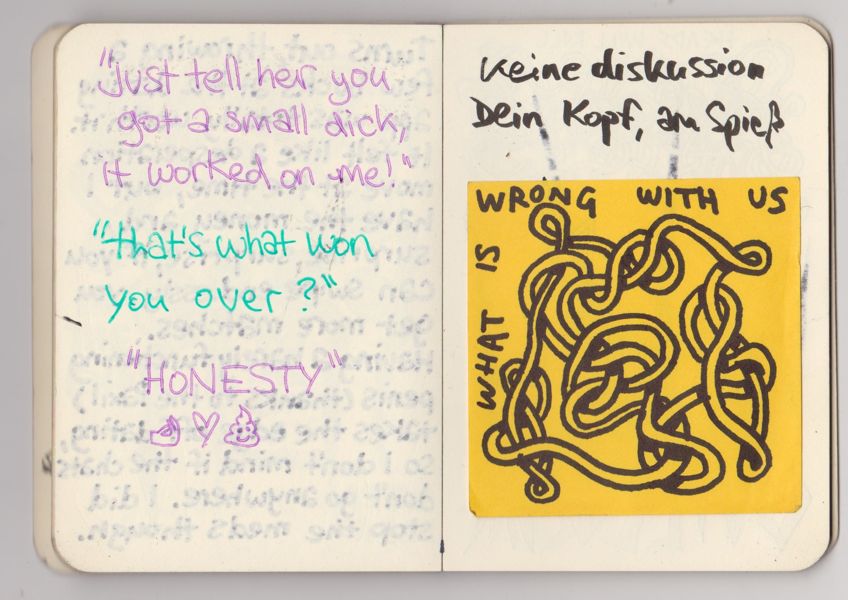 "Just tell her you
got a small dick,
it worked on me!"
"that's what won
you over?"
"HONESTY"
keine diskussion
Dein Kopf, am Spieß
WHAT IS
WRONG WITH US